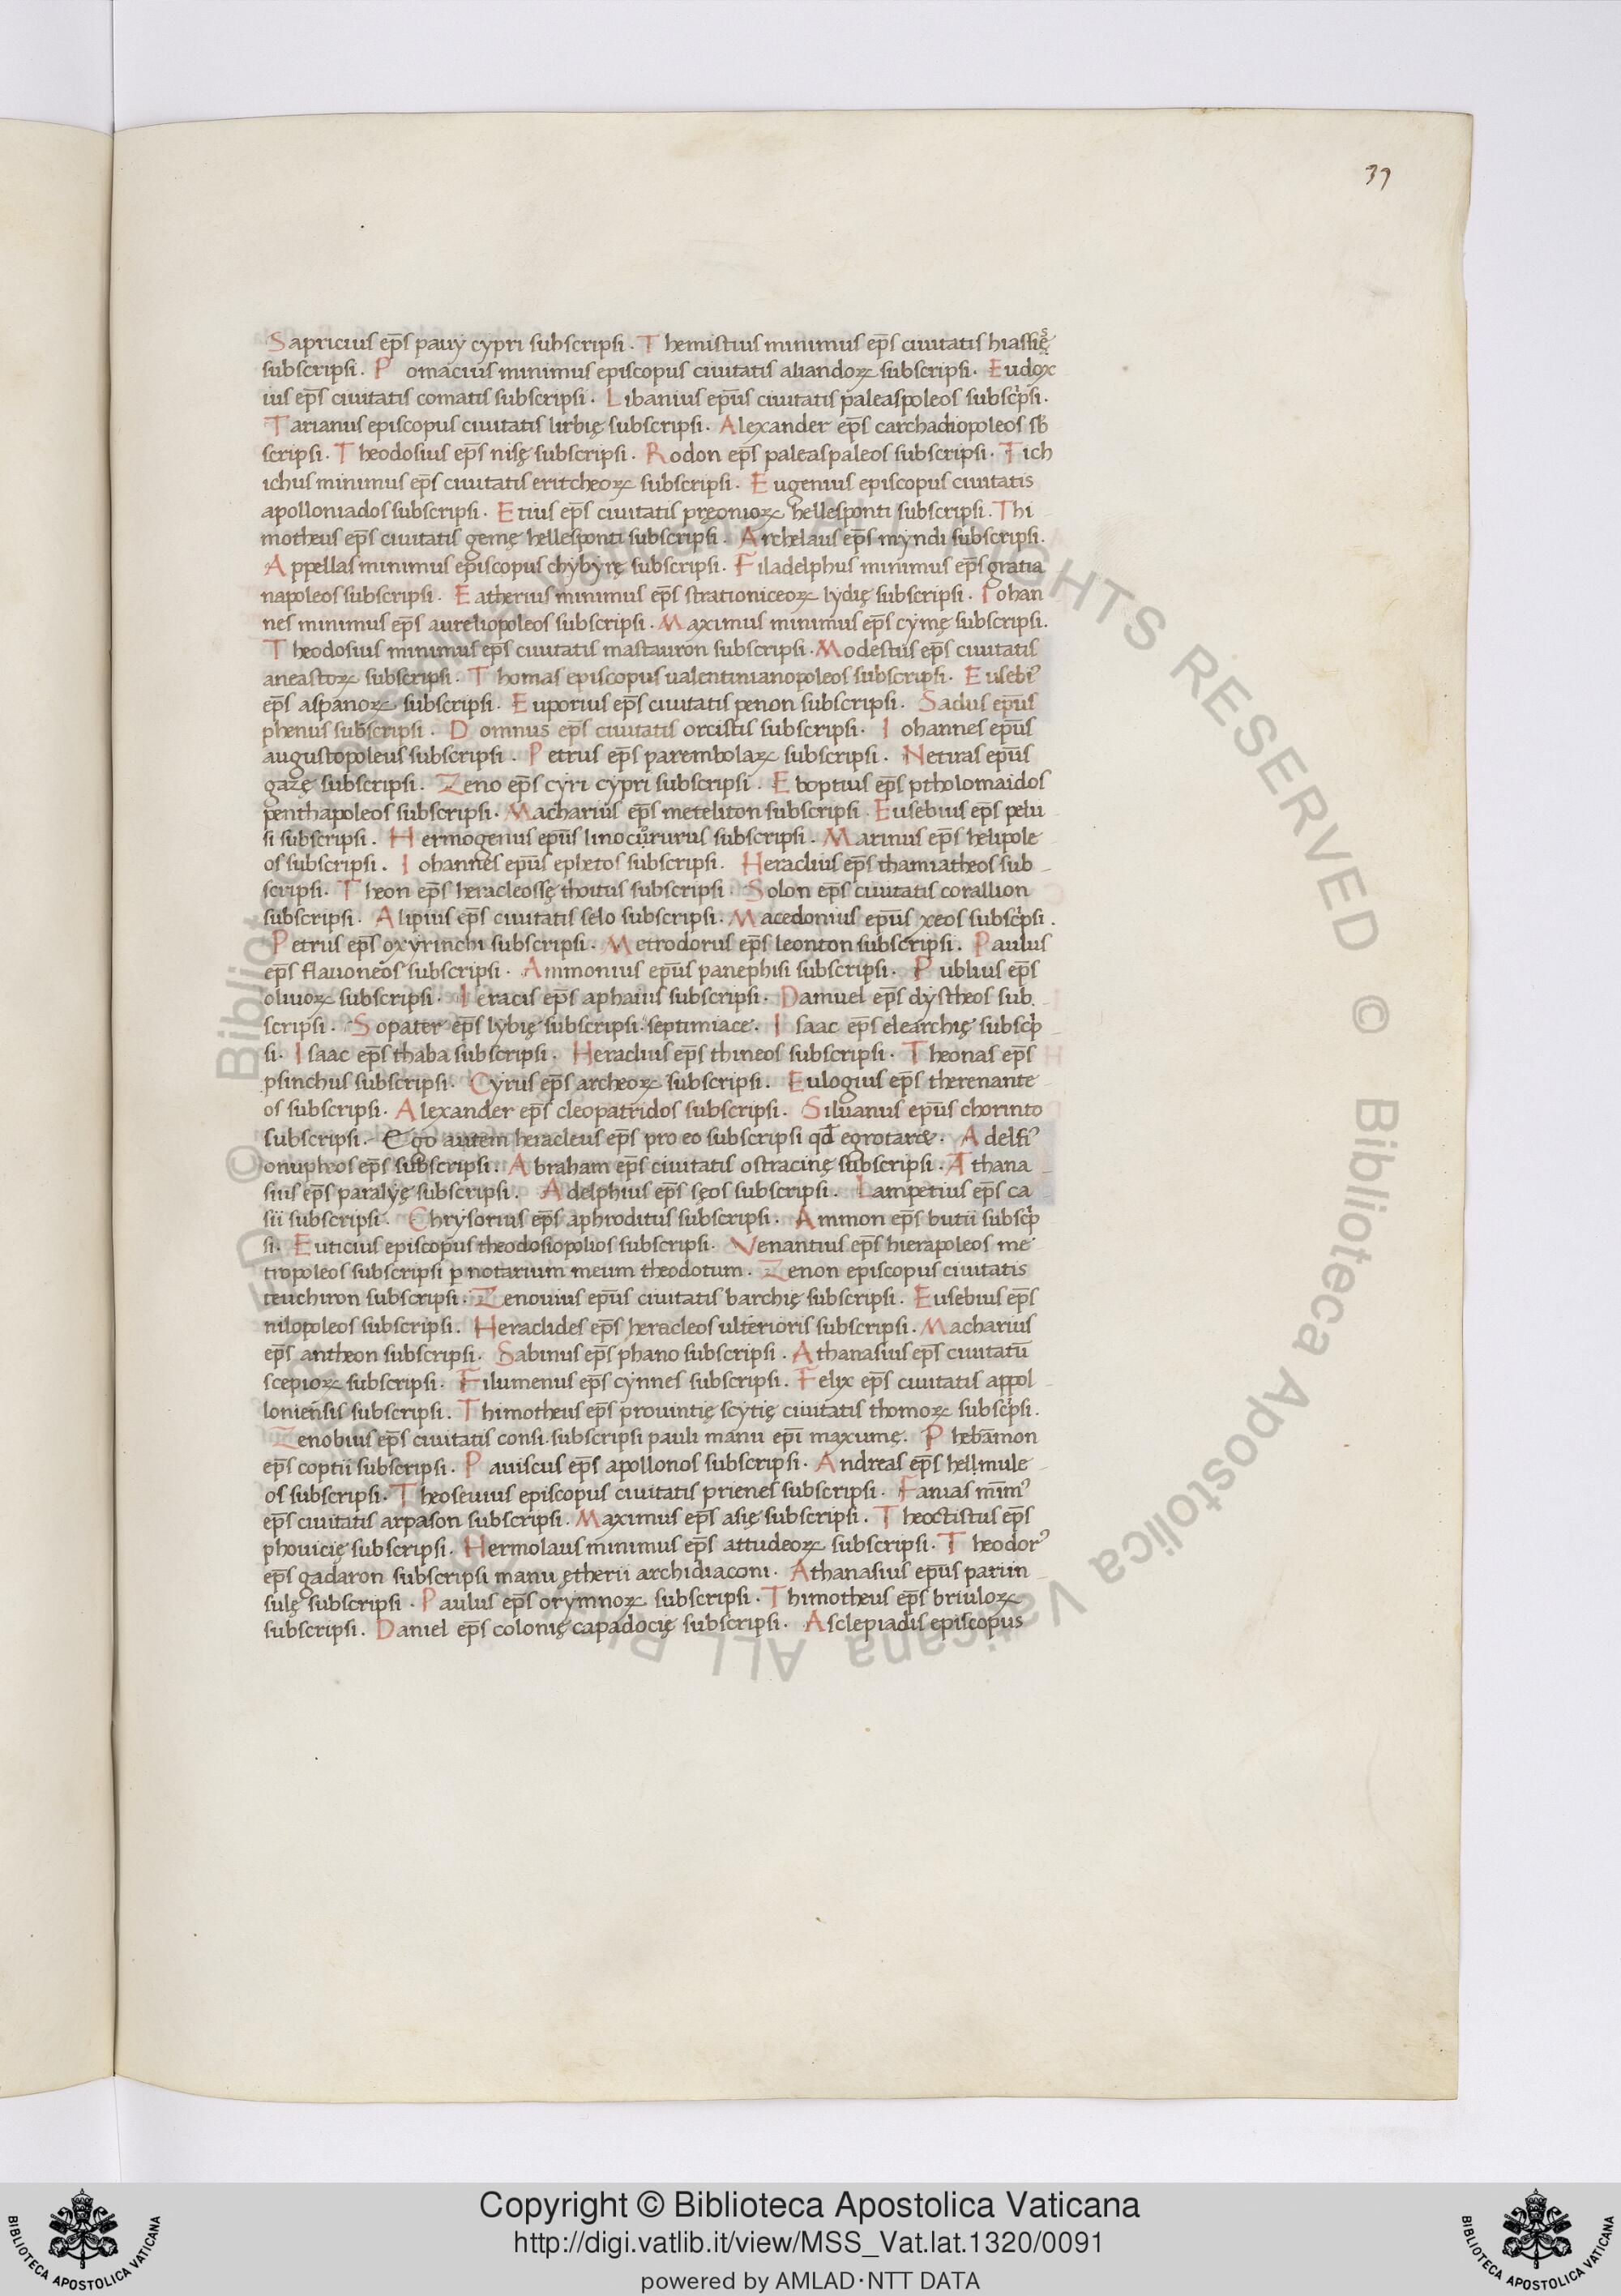 39
Sapricius ep̅s pauy cypri subscripsi. Themistius minimus ep̅s ciuitatis hiassięˢ
subscripsi. Pomacius minimus episcopus ciuitatis aliandoꝝ subscripsi. Eudox
ius ep̅s ciuitatis comatis subscripsi. Libanius epu̅s ciuitatis paleaspoleos subscͥpsi.
Tarianus episcopus ciuitatis lirbię subscripsi. Alexander ep̅s carchadiopoleos sƀ
scripsi. Theodosius ep̅s nisę subscripsi. Rodon ep̅s paleaspaleos subscripsi. Tich
ichus minimus ep̅s ciuitatis eritcheoꝝ subscripsi. Eugenius episcopus ciuitatis
apolloniados subscripsi. Etius ep̅s ciuitatis pręonioꝝ hellesponti subscripsi. Thi
motheus ep̅s ciuitatis gemę hellesponti subscripsi. Archelaus ep̅s myndi subscripsi.
Appellas minimus episcopus chybyrę subscripsi. Filadelphus minimus ep̅s gratia
napoleos subscripsi. Eatherius minimus ep̅s strationiceoꝝ lydię subscripsi. Iohan
nes minimus ep̅s aureliopoleos subscripsi. Maximus minimus ep̅s cymę subscripsi.
Theodosius minimus ep̅s ciuitatis mastauron subscripsi. Modestus ep̅s ciuitatis
aneastoꝝ subscripsi. Thomas episcopus ualentinianopoleos subscripsi. Eusebiꝰ
ep̅s aspanoꝝ subscripsi. Euporius ep̅s ciuitatis penon subscripsi. Sadus epu̅s
phenus subscripsi. Domnus ep̅s ciuitatis orcistis subscripsi. Iohannes epu̅s
augustopoleus subscripsi. Petrus ep̅s parembolaꝝ subscripsi. Neturas epu̅s
gazę subscripsi. Zeno ep̅s cyri cypri subscripsi. Eboptius ep̅s ptholomaidos
penthapoleos subscripsi. Macharius ep̅s meteliton subscripsi. Eusebius ep̅s pelu
si subscripsi. Hermogenus epu̅s linocůrurus subscripsi. Marinus ep̅s helipole
os subscripsi. Iohannes epu̅s ephetos subscripsi. Heraclius ep̅s thamiatheos sub
scripsi. Theon ep̅s heracleossę thoitus subscripsi. Solon ep̅s ciuitatis corallion
subscripsi. Alipius ep̅s ciuitatis selo subscripsi. Macedonius epu̅s xeos subscͥpsi.
Petrus ep̅s oxyrinchi subscripsi. Metrodorus ep̅s leonton subscripsi. Paulus
ep̅s flauoneos subscripsi. Ammonius epu̅s panephisi subscripsi. Publius ep̅s
oliuoꝝ subscripsi. Ieracis ep̅s aphaius subscripsi. Damuel ep̅s dystheos sub
scripsi. Sopater ep̅s lybię subscripsi septimiace. Isaac ep̅s elearchię subscͥp
si. Isaac ep̅s thaba subscripsi. Heraclius ep̅s thineos subscripsi. Theonas ep̅s
psinchus subscripsi. Cyrus ep̅s archeoꝝ subscripsi. Eulogius ep̅s therenante
os subscripsi. Alexander ep̅s cleopatridos subscripsi. Siluanus epu̅s chorinto
subscripsi. Ego autem heracleus ep̅s pro eo subscripsi qd̅ egrotaret. Adelfiꝰ
onuphros ep̅s subscripsi. Abraham ep̅s ciuitatis ostracinę subscripsi. Athana
sius ep̅s paralyę subscripsi. Adelphius ep̅s sęos subscripsi. Lampetius ep̅s ca
sii subscripsi. Chrysorius ep̅s aphroditus subscripsi. Ammon ep̅s butii subscͥp
si. Euticius episcopus theodosiopolios subscripsi. Venantius ep̅s hierapoleos me
tropoleos subscripsi ꝑ notarium meum theodotum. Zenon episcopus ciuitatis
teuchiron subscripsi. Zenouius epu̅s ciuitatis barchię subscripsi. Eusebius ep̅s
nilopoleos subscripsi. Heraclides ep̅s heracleos ulterioris subscripsi. Macharius
ep̅s antheon subscripsi. Sabinus ep̅s phano subscripsi. Athanasius ep̅s ciuitatu̅
scepioꝝ subscripsi. Filumenus ep̅s cynnes subscripsi. Felyx ep̅s ciuitatis appol
loniensis subscripsi. Thimotheus ep̅s prouintię scytię ciuitatis thomoꝝ subscͥpsi.
Zenobius ep̅s ciuitatis consi subscripsi pauli manu epi̅ maxumę. Pheba̅mon
ep̅s coptii subscripsi. Pauiscus ep̅s apollonos subscripsi. Andreas ep̅s hellmule
os subscripsi. Theoseuius episcopus ciuitatis prienes subscripsi. Fanias mi̅mꝰ
ep̅s ciuitatis arpason subscripsi. Maximus ep̅s asię subscripsi. Theoctistus ep̅s
phouicię subscripsi. Hermolaus minimus ep̅s attudeoꝝ subscripsi. Theodorꝰ
ep̅s gadaron subscripsi manu ętherii archidiaconi. Athanasius epu̅s pariin
sulę subscripsi. Paulus ep̅s orymnoꝝ subscripsi. Thimotheus ep̅s briuloꝝ
subscripsi. Daniel ep̅s colonię capadocię subscripsi. Asclepiadis episcopus
Copyright © Biblioteca Apostolica Vaticana
http://digi.vatlib.it/view/MSS_Vat.lat.1320/0091
powered by AMLAD·NTT DATA
BIBLIOTECA APOSTOLICA VATICANA
BIBLIOTECA APOSTOLICA VATICANA